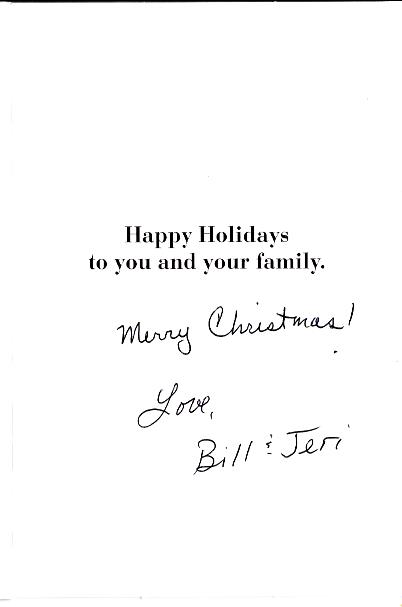 Happy Holidays
to you and your family.
Merry Christmas!
Love,
Bill & Jeri